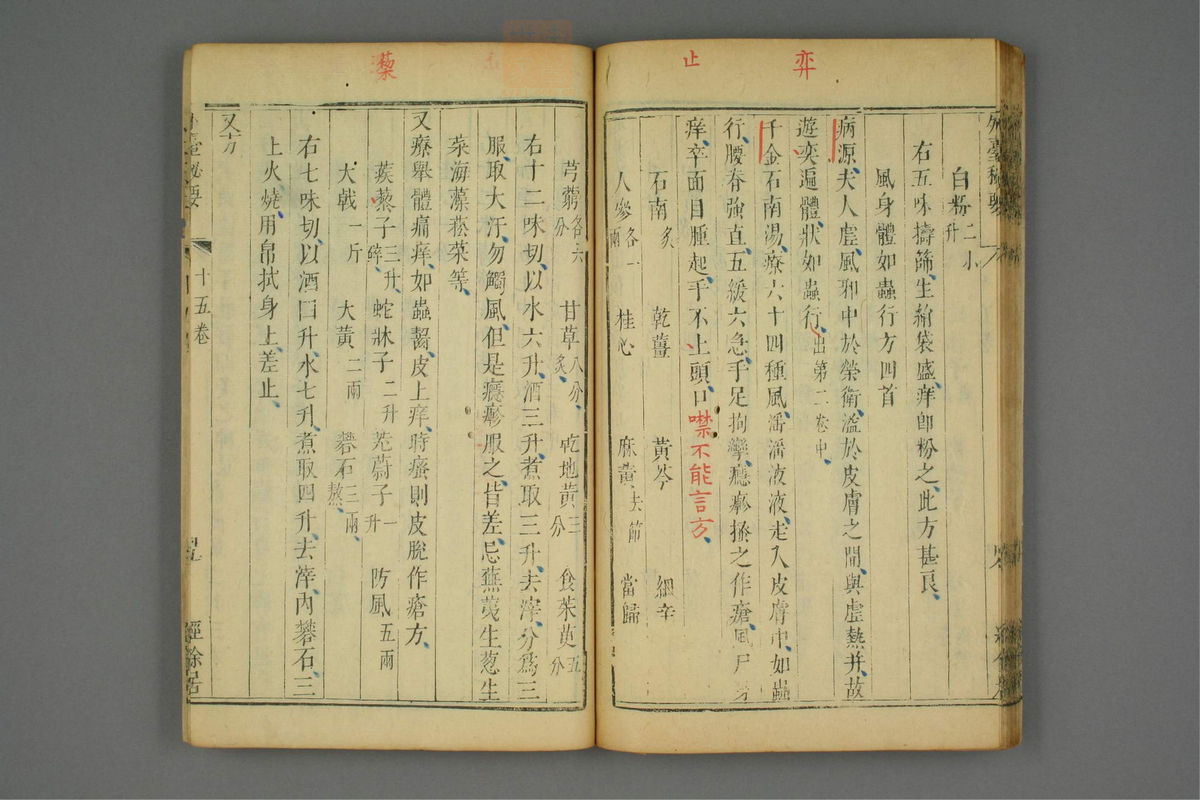 弈
止
外臺秘要
白粉二小升
右五味擣篩生絹袋盛痒卽粉之此方甚良
風身體如蟲行方四首
病源夫人虛風邪中於榮衛溢於皮膚之間與虛熱并故
遊奕遍體狀如蟲行出第二卷中
千金石南湯療六十四種風淫淫液液走入皮膚中如蟲
行腰脊強直五緩六急手足拘攣癮疹搔之作瘡風尸身
痒卒面目腫起手不上頭口噤不能言方
石南炙 乾薑 黃芩 細辛
人參各一兩 桂心 麻黃去節 當歸
蘂
芎藭各六分 甘草八分炙 乾地黃三分 食茱萸五分
右十二味切以水六升酒三升煮取三升去滓分爲三
服取大汗勿觸風但是癮疹服之皆差忌蕪荑生葱生
菜海藻菘菜等
又療舉體痛痒如蟲齧皮上痒時瘙則皮脫作瘡方
蒺蔾子三升碎 蛇牀子二升 茺蔚子一升 防風五兩
大戟一斤 大黃二兩 礬石三兩熬
右七味切以酒四升水七升煮取四升去滓內礬石三
上火燒用帛拭身上差止
又方
外臺秘要
十五卷
經餘居